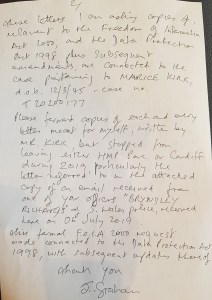 2/
these letters I am asking copies of
relevant to the Freedom of Information
Act 2000, and the Data Protection
Act 1998, plus subsequent
amendments are connected to the
case pertaining to MAURICE KIRK,
d.o.b. 12/3/45 - case no.
T 20200177
Please forward copies of each and every
letter meant for myself, written by
Mr Kirk, but stopped from
leaving either HMP or Cardiff
during 2019 particularly the
letter referred to in the attached
copy of an email received from
one of your officers
of S. Wales police, received
here on 26 July 2019
this formal F.O.I.A 2000 request
made connected to the Data Protection Act
1998, with subsequent updates thereof
thank you
J. Graham